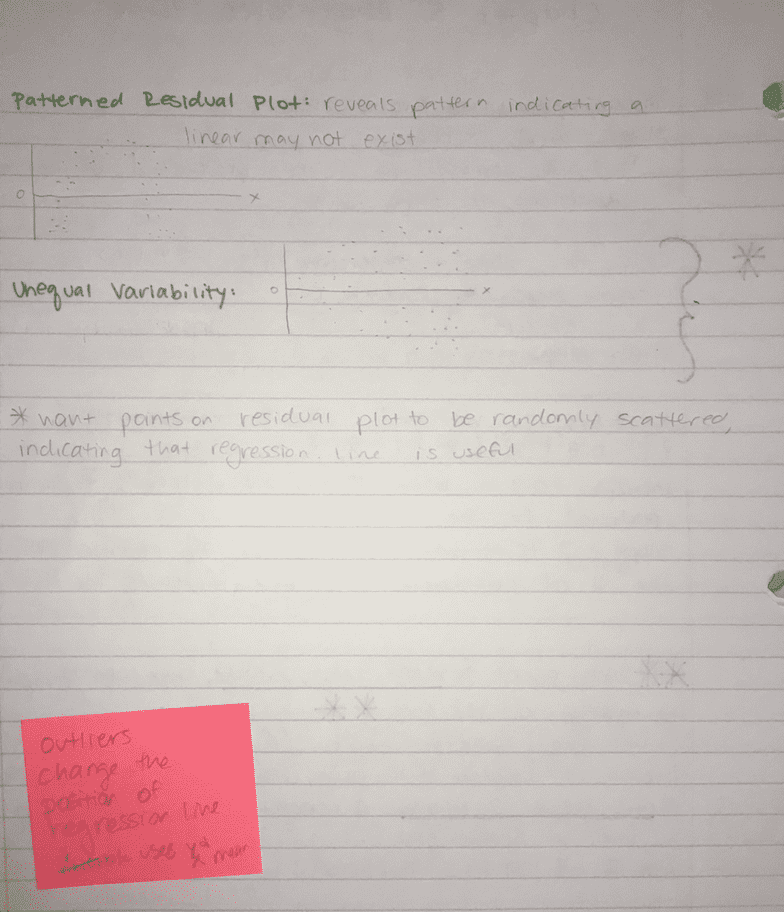 Patterned Residual Plot: reveals pattern indicating a
linear may not exist
0 x
Unequal Variability: 0 x
*
* want points on residual plot to be randomly scattered,
indicating that regression line is useful
**
**
outliers
change the
position of
regression line
uses mean